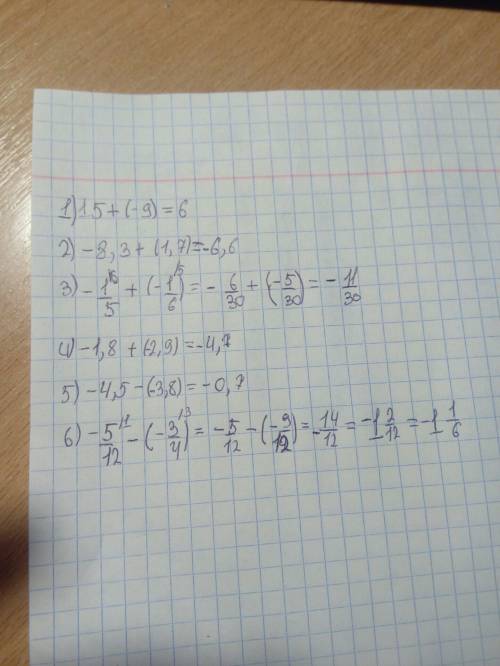 1) 15 + (-9) = 6
2) -8,3 + (1,7) = -6,6
3) -1/5^6 + (-1/6)^5 = - 6/30 + (-5/30) = - 11/30
4) -1,8 + (2,9) = -4,7
5) -4,5 - (-3,8) = -0,7
6) -5/12^1 - (-3/4)^3 = -5/12 - (-9/12) = -14/12 = -1 2/12 = -1 1/6